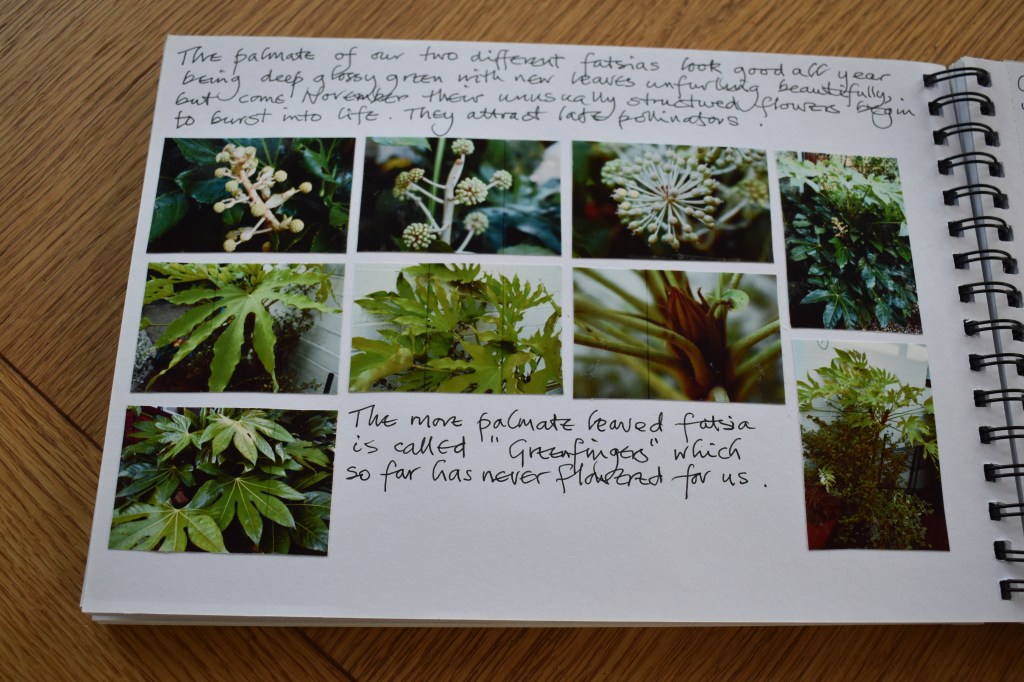 The palmate of our two different fatsias look good all year
being deep glossy green with new leaves unfurling beautifully.
but come November their unusually structured flowers begin
to burst into life. They attract late pollinators.
The more palmate leaved fatsia
is called "Greenfingers" which
so far has never flowered for us.